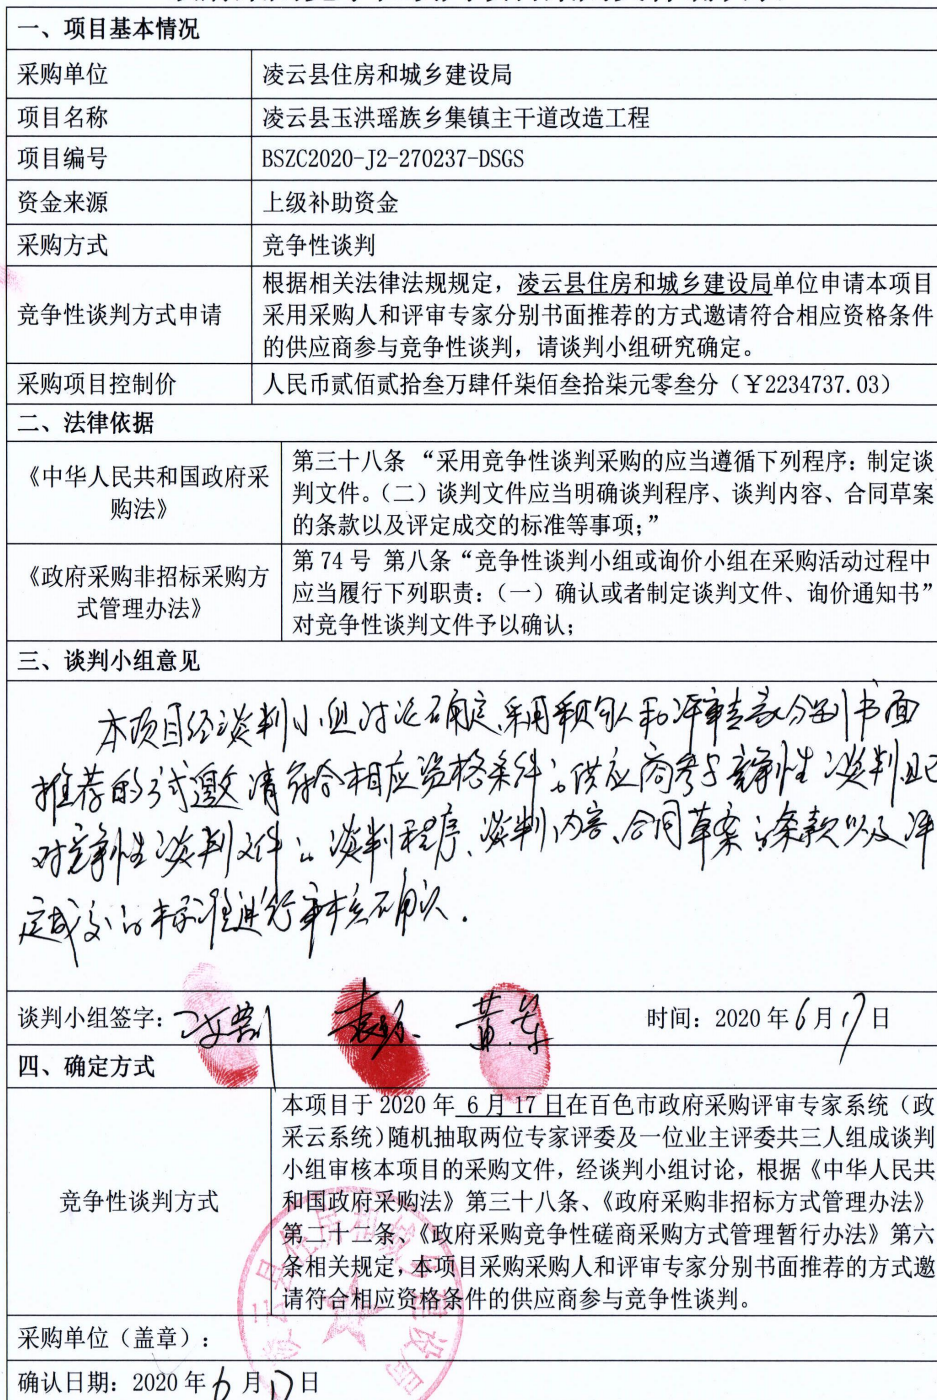 一、项目基本情况
采购单位 凌云县住房和城乡建设局
项目名称 凌云县玉洪瑶族乡集镇主干道改造工程
项目编号 BSZC2020-J2-270237-DSGS
资金来源 上级补助资金
采购方式 竞争性谈判
竞争性谈判方式申请
根据相关法律法规规定，凌云县住房和城乡建设局单位申请本项目
采用采购人和评审专家分别书面推荐的方式邀请符合相应资格条件
的供应商参与竞争性谈判，请谈判小组研究确定。
采购项目控制价 人民币贰佰贰拾叁万肆仟柒佰叁拾柒元零叁分（￥2234737.03）
二、法律依据
《中华人民共和国政府采
购法》
第三十八条 “采用竞争性谈判采购的应当遵循下列程序：制定谈
判文件。（二）谈判文件应当明确谈判程序、谈判内容、合同草案
的条款以及评定成交的标准等事项；”
《政府采购非招标采购方
式管理办法》
第 74 号 第八条“竞争性谈判小组或询价小组在采购活动过程中
应当履行下列职责：（一）确认或者制定谈判文件、询价通知书”
对竞争性谈判文件予以确认；
三、谈判小组意见
本项目经谈判小组讨论确定,采用采购人和评审专家分别书面
推荐的方式邀请符合相应资格条件的供应商参与竞争性谈判且已
对竞争性谈判文件的谈判程序、谈判内容、合同草案的条款以及评
定成交的标准进行审核确认.
谈判小组签字： 黄 时间：2020 年 6 月 17 日
四、确定方式
竞争性谈判方式
本项目于 2020 年 6 月 17 日在百色市政府采购评审专家系统（政
采云系统）随机抽取两位专家评委及一位业主评委共三人组成谈判
小组审核本项目的采购文件，经谈判小组讨论，根据《中华人民共
和国政府采购法》第三十八条、《政府采购非招标方式管理办法》
第二十二条、《政府采购竞争性磋商采购方式管理暂行办法》第六
条相关规定，本项目采购采购人和评审专家分别书面推荐的方式邀
请符合相应资格条件的供应商参与竞争性谈判。
凌云县住房和城乡建设局
采购单位（盖章）：
确认日期：2020 年 6 月 17 日